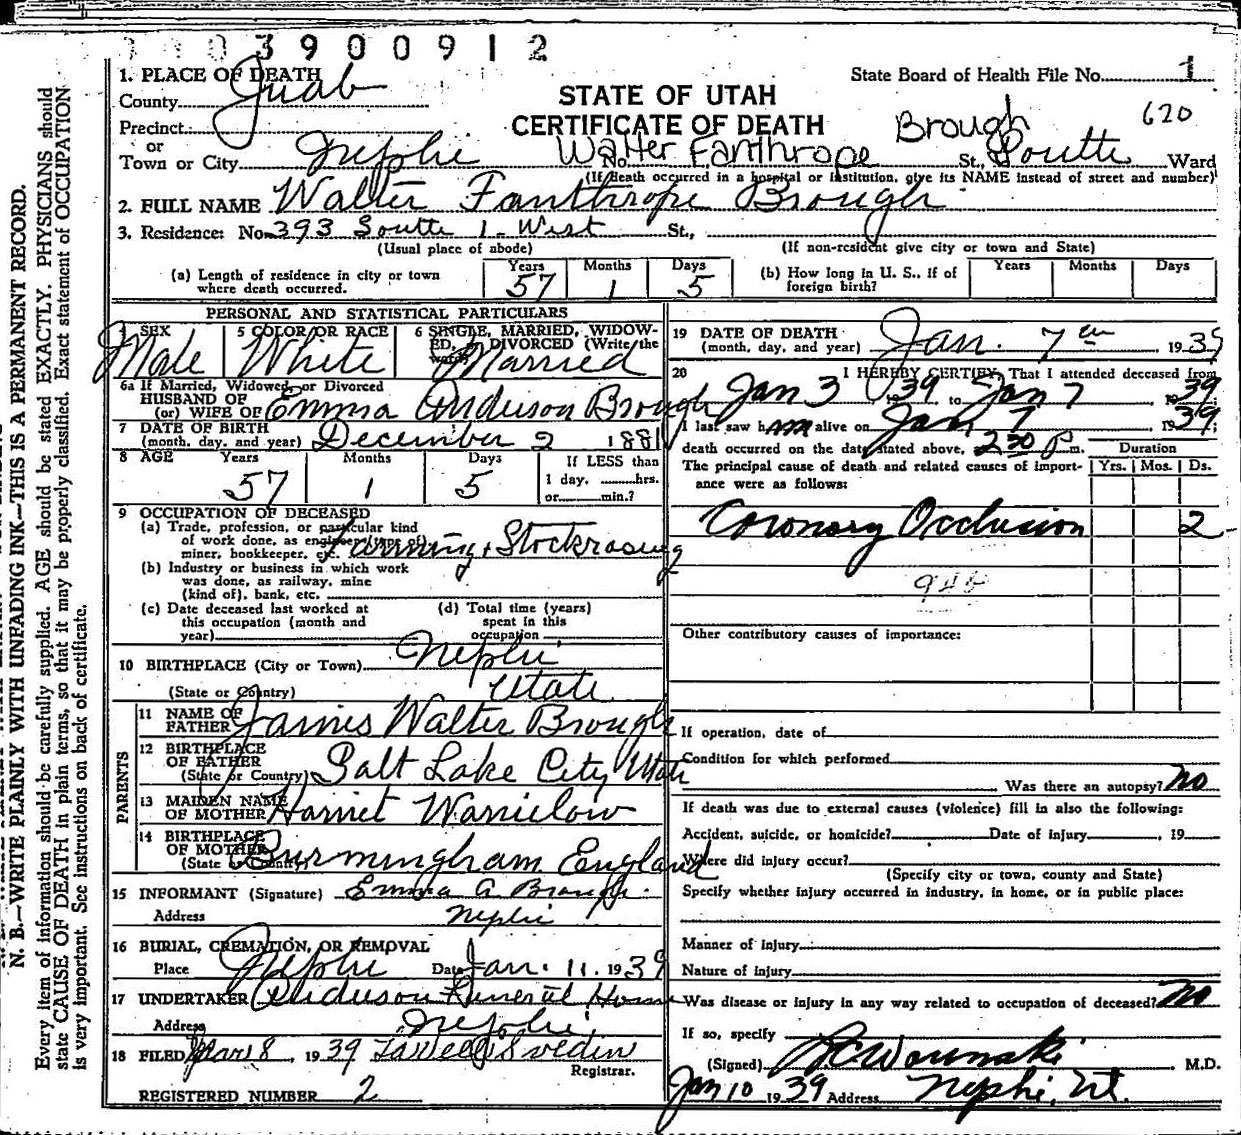 3900912
1. PLACE OF DEATH
State Board of Health File No. 1
County Juab
STATE OF UTAH
620
Precinct
CERTIFICATE OF DEATH
Brough
or
Town or City Nephi No. Walter Fanthrope St., South Ward
(If death occurred in a hospital or institution, give its NAME instead of street and number)
2. FULL NAME Walter Fanthrope Brough
3. Residence: No. 393 South 1. West St.,
(Usual place of abode) (If non-resident give city or town and State)
(a) Length of residence in city or town where death occurred. Years 57 Months 1 Days 5
(b) How long in U. S., if of foreign birth? Years Months Days
PERSONAL AND STATISTICAL PARTICULARS
4 SEX Male
5 COLOR OR RACE White
6 SINGLE, MARRIED, WIDOWED, DIVORCED (Write the word) Married
6a If Married, Widowed, or Divorced
HUSBAND OF
(or) WIFE OF Emma Anderson Brough
7 DATE OF BIRTH
(month, day, and year) December 2 1881
8 AGE Years 57 Months 1 Days 5
If LESS than
1 day, hrs.
or min.?
9 OCCUPATION OF DECEASED
(a) Trade, profession, or particular kind
of work done, as engineer (type of)
miner, bookkeeper, etc. Farming & Stockrasing
(b) Industry or business in which work
was done, as railway, mine
(kind of), bank, etc.
(c) Date deceased last worked at
this occupation (month and
year)
(d) Total time (years)
spent in this
occupation
10 BIRTHPLACE (City or Town) Nephi
(State or Country) Utah
PARENTS
11 NAME OF
FATHER James Walter Brough
12 BIRTHPLACE
OF FATHER
(State or Country) Salt Lake City Utah
13 MAIDEN NAME
OF MOTHER Harriet
14 BIRTHPLACE
OF MOTHER
(State or Country) Burmingham England
15 INFORMANT (Signature) Emma A Brough
Address Nephi
16 BURIAL, CREMATION, OR REMOVAL
Place Nephi Date Jan. 11. 1939
17 UNDERTAKER Anderson Funeral Home
Address Nephi
18 FILED 8, 1939 Svedin
Registrar.
REGISTERED NUMBER 2
19 DATE OF DEATH
(month, day, and year) Jan. 7 1939
20 I HEREBY CERTIFY, That I attended deceased from
Jan 3 1939 to Jan 7 1939
I last saw him alive on Jan 7 1939;
death occurred on the date stated above, 2:30 P.m.
Duration
The principal cause of death and related causes of importance were as follows:
Yrs. Mos. Ds.
Coronary Occlusion 2
Other contributory causes of importance:
If operation, date of
Condition for which performed
Was there an autopsy? No
If death was due to external causes (violence) fill in also the following:
Accident, suicide, or homicide? Date of injury , 19
Where did injury occur?
(Specify city or town, county and State)
Specify whether injury occurred in industry, in home, or in public place:
Manner of injury
Nature of injury
Was disease or injury in any way related to occupation of deceased? No
If so, specify
(Signed) M.D.
Jan 10 1939 Address Nephi, Ut.
N. B.—WRITE PLAINLY WITH UNFADING INK—THIS IS A PERMANENT RECORD.
Every item of information should be carefully supplied. AGE should be stated EXACTLY. PHYSICIANS should
state CAUSE OF DEATH in plain terms, so that it may be properly classified. Exact statement of OCCUPATION
is very important. See instructions on back of certificate.